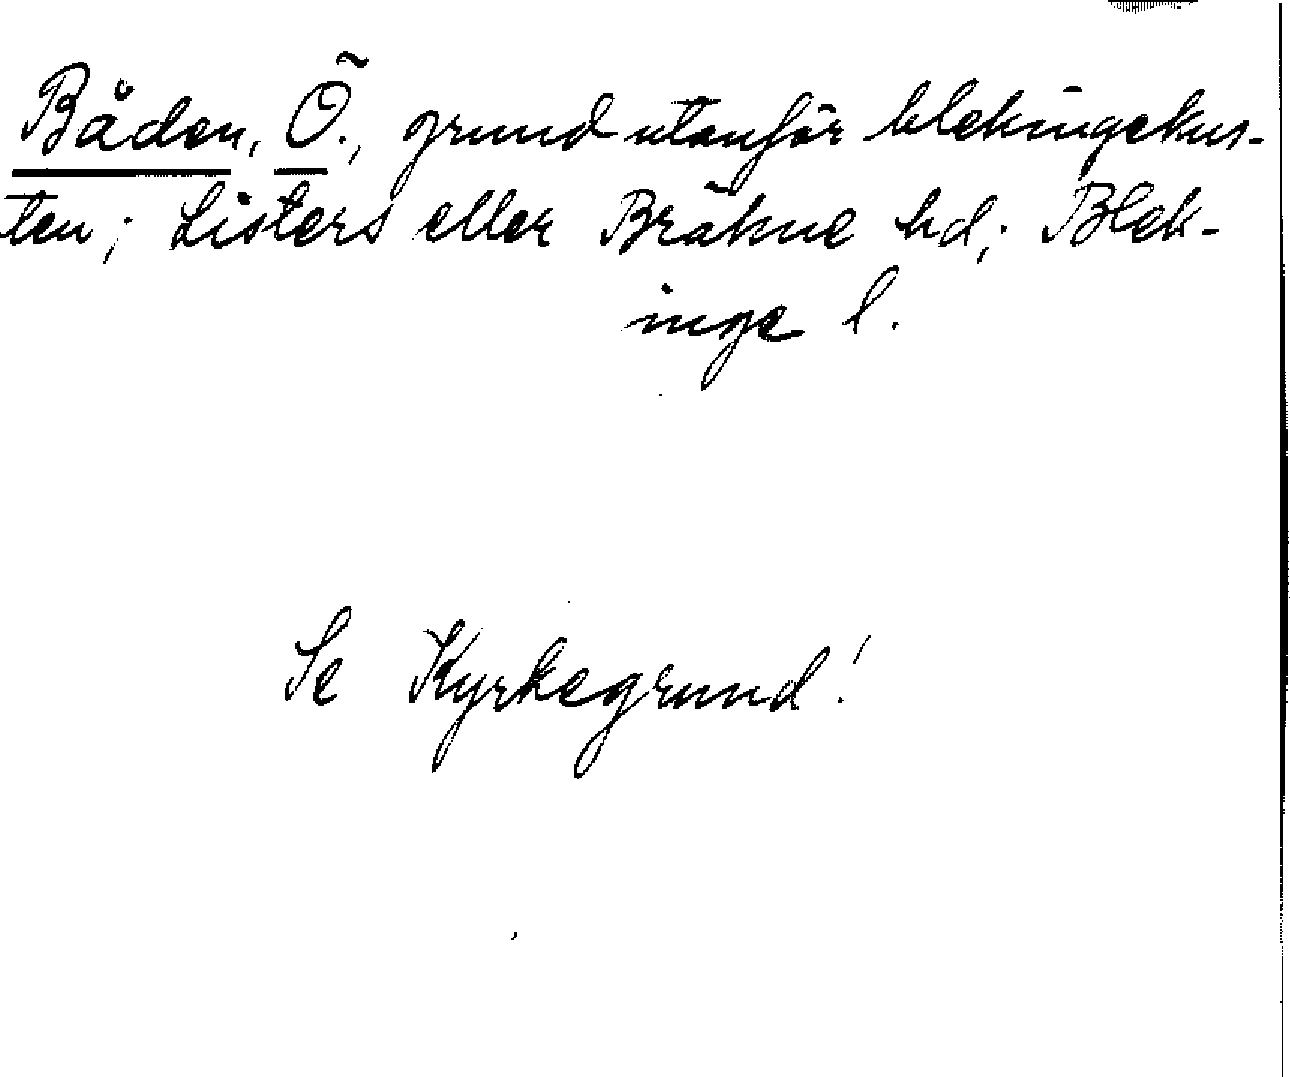 Båden, Ö., grund utanför blekingekus-
ten; Listers eller Bräkne hd; Blek-
inge l.
Se Kyrkegrund!